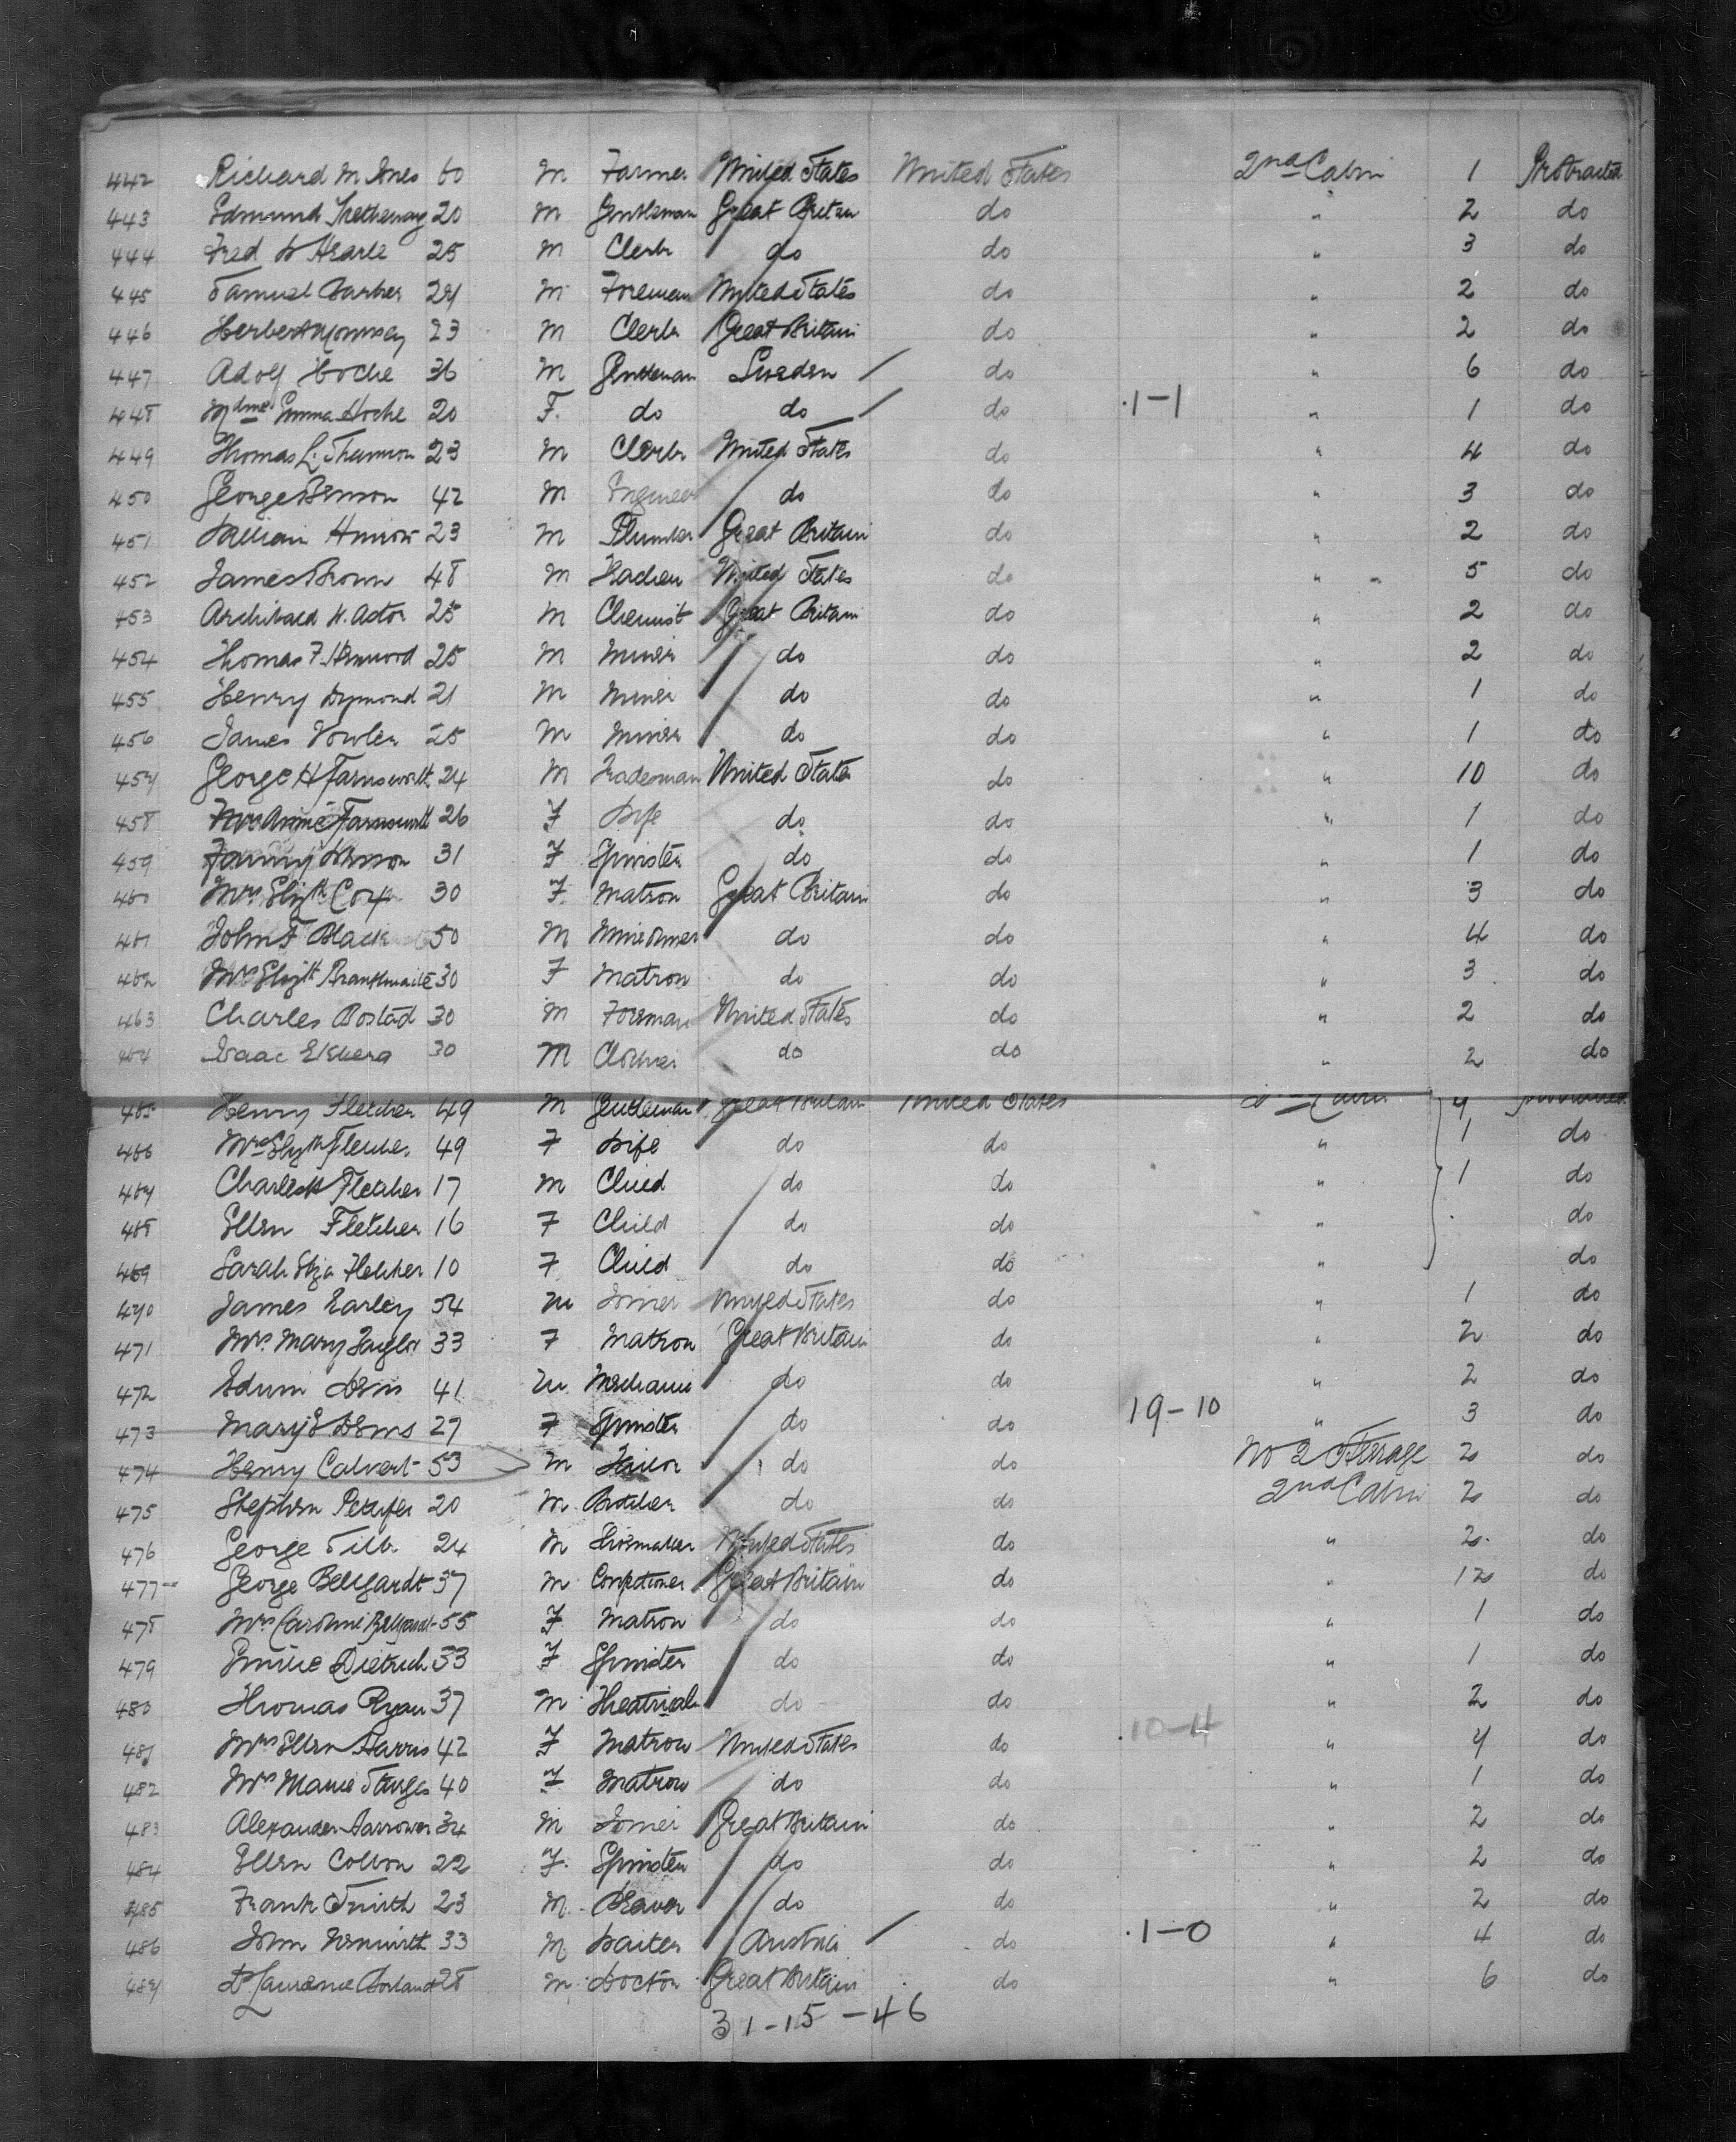 442 Richard M Ines 60 M Farmer United States United States 2nd Cabin 1 Protracted
443 Edmund Trethewey 20 M Gentleman Great Britain do " 2 do
444 Fred W Hearle 25 M Clerk do do " 3 do
445 Samuel Barber 24 M Foreman United States do " 2 do
446 Herbert 23 M Clerk Great Britain do " 2 do
447 Adolf Hoche 36 M Gentleman Sweden / do " 6 do
448 Mdme Emma Hoche 20 F. do do / do 1-1 " 1 do
449 Thomas L. 23 M Clerk United States do " 4 do
450 George Benson 42 M Engineer do do " 3 do
451 William 23 M Plumber Great Britain do " 2 do
452 James Brown 48 M United States do " 5 do
453 Archibald H. Astor 25 M Chemist Great Britain do " 2 do
454 Thomas F. Henwood 25 M Miner do do " 2 do
455 Henry Dymond 21 M Miner do do " 1 do
456 James Vowler 25 M Miner do do " 1 do
457 George H Farnsworth 24 M Tradesman United States do " 10 do
458 Mrs Annie Farnsworth 26 F Wife do do " 1 do
459 Fanny 31 F Spinster do do " 1 do
460 Mrs Elizth Cox 30 F. Matron Great Britain do " 3 do
461 John F Black 50 M Mine Owner do do " 4 do
462 Mrs Elizth Branthwaite 30 F Matron do do " 3 do
463 Charles Bostad 30 M Foreman United States do " 2 do
464 Isaac Elsberg 30 M Clothier do do " 2 do
465 Henry Fletcher 49 M Gentleman Great Britain United States 2nd Cabin 4 Protracted
466 Mrs Elizth Fletcher 49 F Wife do do " 1 do
467 Charles H Fletcher 17 M Child do do " 1 do
468 Ellen Fletcher 16 F Child do do " do
469 Sarah Eliza Fletcher 10 F Child do do " do
470 James Earley 54 M Joiner United States do " 1 do
471 Mrs. Mary Taylor 33 F Matron Great Britain do " 2 do
472 Edwin Dews 41 M. Mechanic do do " 2 do
473 Mary E Dews 27 F Spinster do do 19-10 " 3 do
474 Henry Calvert 53 M do do No 2 Steerage 2 do
475 Stephen Petifer 20 M. Butcher do do 2nd Cabin 2 do
476 George 24 M Shoemaker United States do " 2 do
477 George Bellgardt 37 M Confectioner Great Britain do " 12 do
478 Mrs Caroline Bellgardt 55 F Matron do do " 1 do
479 Emilie Dietrich 33 F Spinster do do " 1 do
480 Thomas Ryan 37 M Theatrical do do " 2 do
481 Mrs Ellen Harris 42 F Matron United States do 10-4 " 4 do
482 Mrs Marie Sturges 40 F Matron do do " 1 do
483 Alexander Barrower 34 M Joiner Great Britain do " 2 do
484 Ellen Colton 22 F. Spinster do do " 2 do
485 Frank Smith 23 M. Weaver do do " 2 do
486 John 33 M. Waiter Austria / do 1-0 " 4 do
487 Dr Laurence Borland 28 M Doctor Great Britain do " 6 do
31-15-46